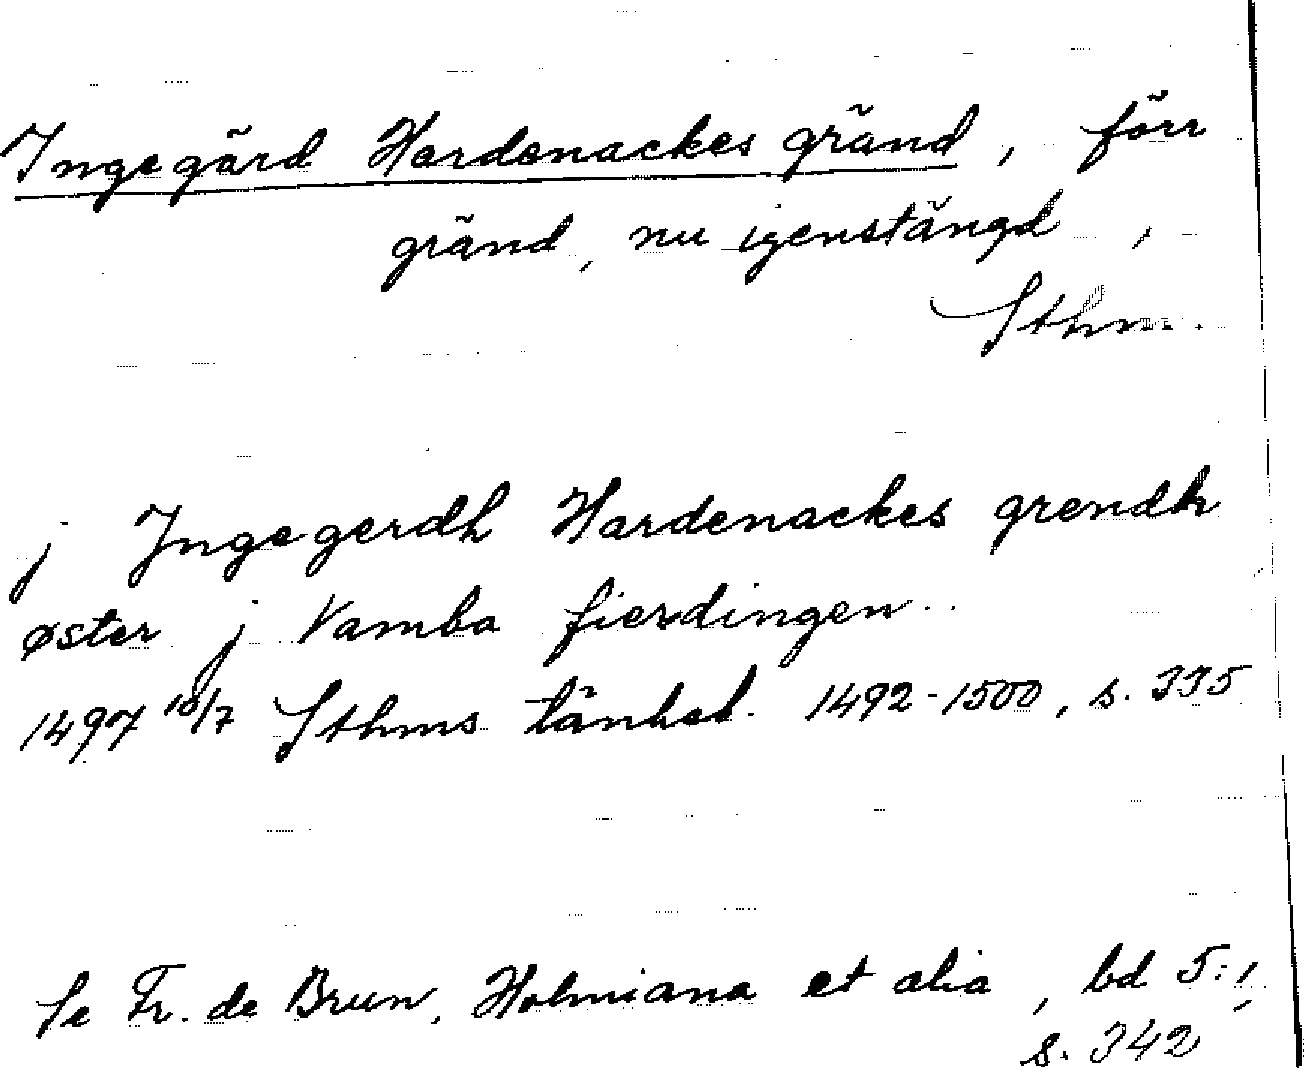 Ingegärd Hardenackes gränd, förr
gränd, nu igenstängd,
Sthm.
j Ingegerdh Hardenackes grendh
øster j Vamba fierdingen
1497 10/7 Sthms tänkeb. 1492-1500, s. 335
Se Fr. de Brun, Holmiana et alia, bd 5:1,
s. 342